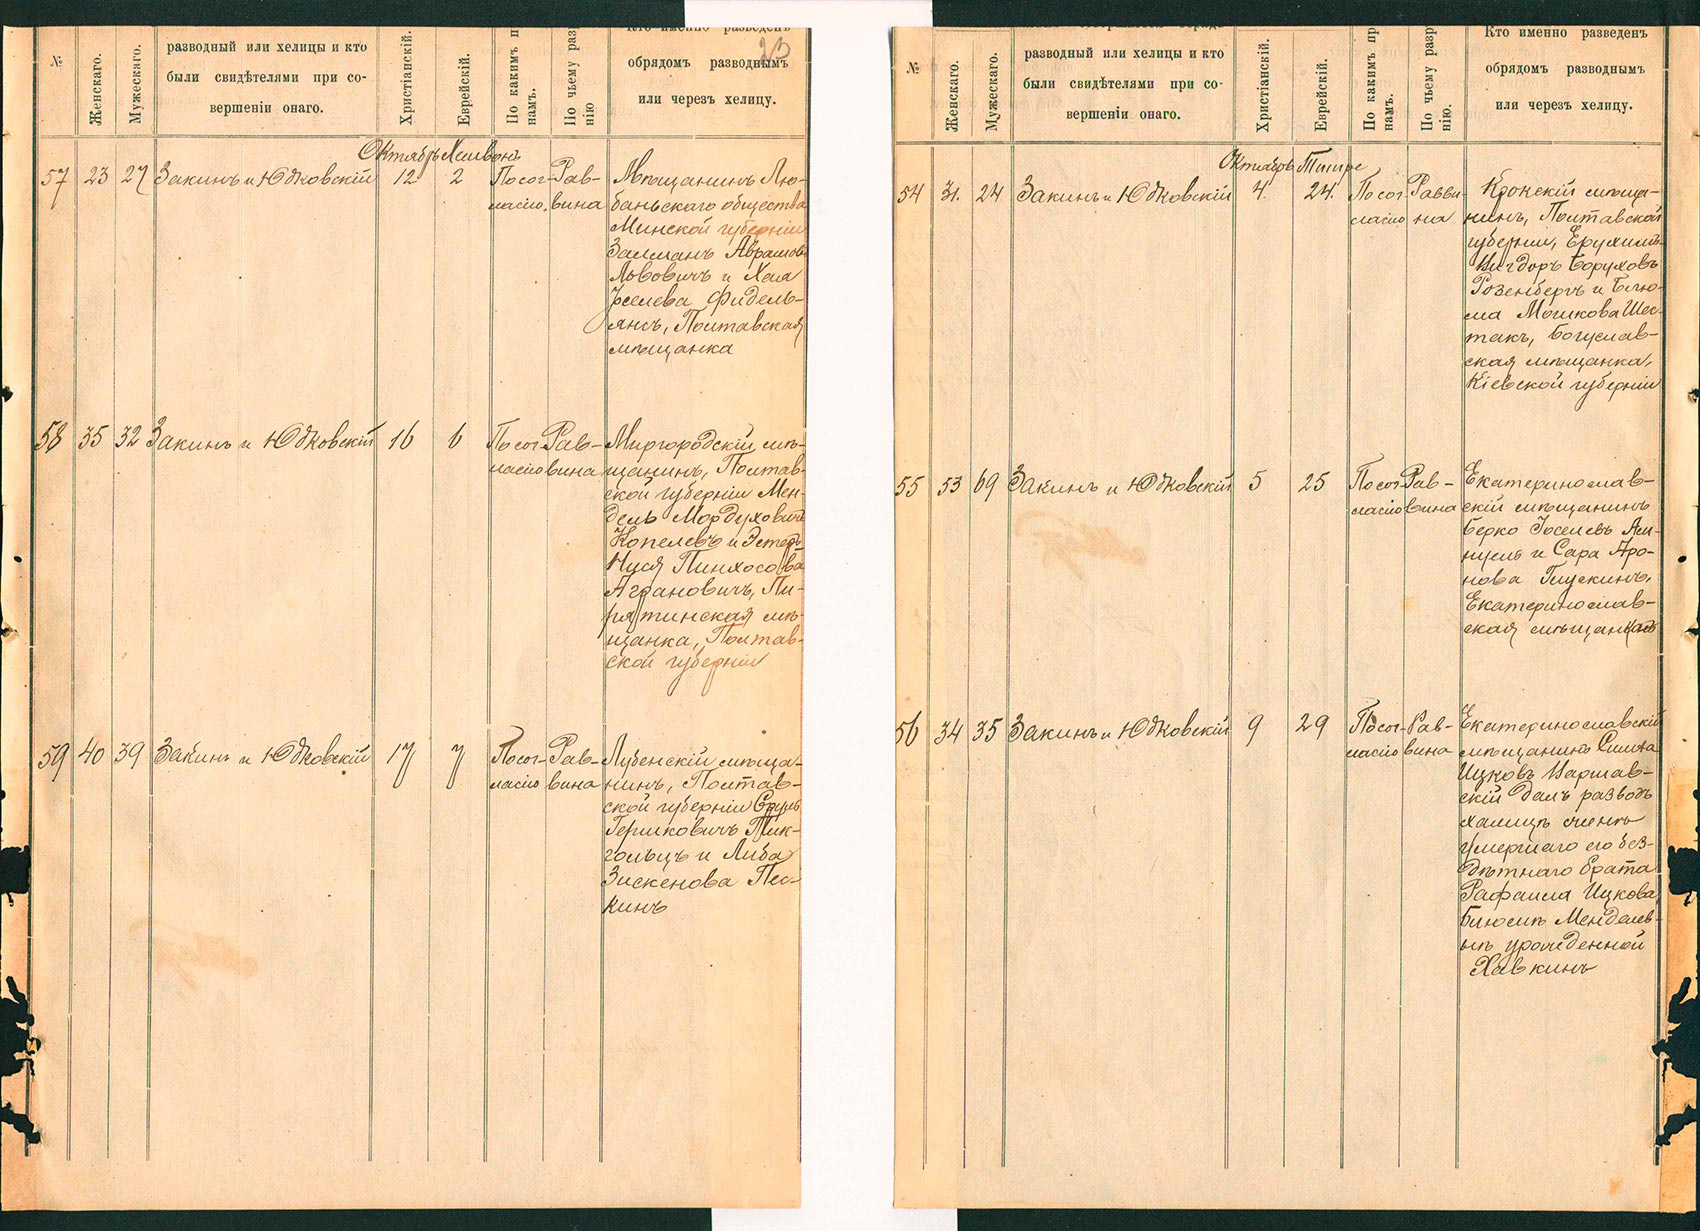 Кто именно разведенъ
23
№
Женскаго.
Мужескаго.
разводный или хелицы и кто
были свидѣтелями при со-
вершеніи онаго.
Христіанскій.
Еврейскій.
По какимъ п
намъ.
По чьему раз
нію
обрядомъ разводнымъ
или черезъ хелицу.
Октябрь Хешвонъ
57 23 27 Закинъ и Юдковскій 12 2 По сог- Рав-
ласію. вина
Мѣщанинъ Лю-
баньскаго общества
Минской губерніи
Залманъ Аврамов
Львовичъ и Хая
Іоселева Фидель-
янъ, Полтавская
мѣщанка
58 35 32 Закинъ и Юдковскій 16 6 По сог- Рав-
ласію вина
Миргородскій мѣ-
щанинъ, Полтав-
ской губерніи Мен-
дель Мордуховичъ
Копелевъ и Эстеръ-
Нися Пинхосова
Аграновичъ, Пи-
рятинская мѣ-
щанка, Полтав-
ской губерніи
59 40 39 Закинъ и Юдковскій 17 7 По сог- Рав-
ласію вина
Лубенскій мѣща-
нинъ, Полтав-
ской губерніи Сруль
Гершковичъ Пик-
гольцъ и Либа
Зискенова Пес-
кинъ
№
Женскаго.
Мужескаго.
разводный или хелицы и кто
были свидѣтелями при со-
вершеніи онаго.
Христіанскій.
Еврейскій.
По какимъ пр
намъ.
По чьему разр
нію.
Кто именно разведенъ
обрядомъ разводнымъ
или черезъ хелицу.
Октябрь Тишре
54 31. 24 Закинъ и Юдковскій 4. 24. По сог- Равви-
ласію на
Кронскій мѣща-
нинъ, Полтавской
губерніи, Ерухимъ-
Вигдоръ Боруховъ
Розенбергъ и Блю-
ма Мошкова Шес-
такъ, Богуслав-
ская мѣщанка,
Кіевской губерніи
55 53 69 Закинъ и Юдковскій 5 25 По сог- Рав-
ласію вина
Екатеринослав-
скій мѣщанинъ
Берко Іоселевъ
и Сара Аро-
нова Глускинъ,
Екатеринослав-
ская мѣщанка
56 34 35 Закинъ и Юдковскій 9 29 По сог- Рав-
ласію вина
Екатеринославскій
мѣщанинъ Симха
Ицковъ Варшав-
скій далъ разводъ
халицъ женѣ
умершаго его без-
дѣтнаго брата
Рафаила Ицкова,
Блюмѣ Менделев-
нѣ урожденной
Хавкинъ